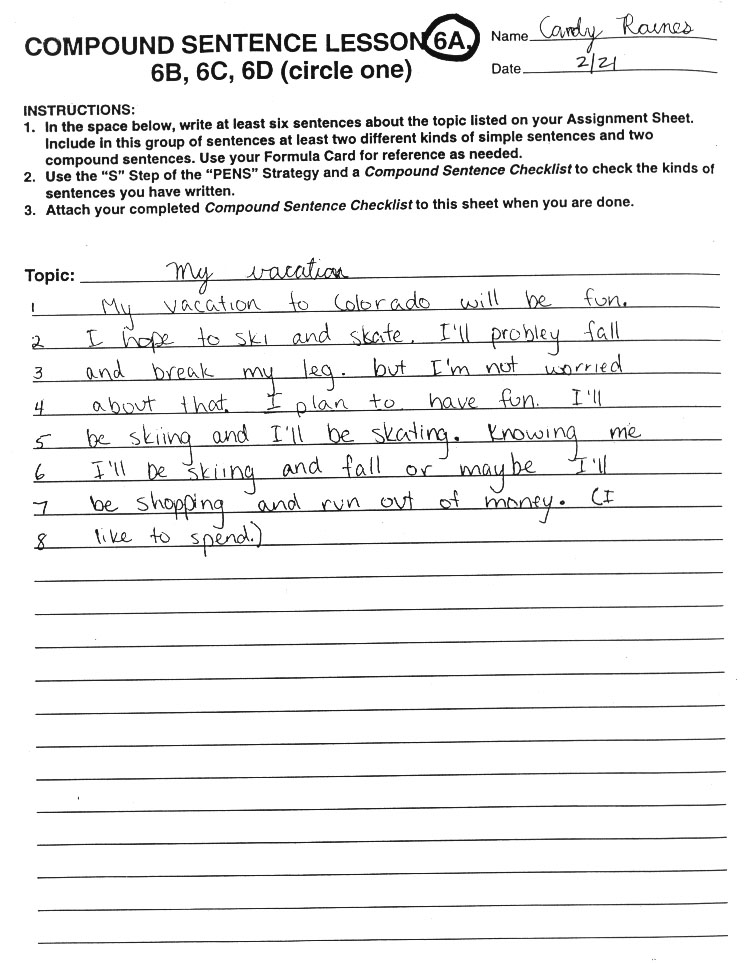 COMPOUND SENTENCE LESSON 6A, Name Candy Raines
6B, 6C, 6D (circle one) Date 2/21
INSTRUCTIONS:
1. In the space below, write at least six sentences about the topic listed on your Assignment Sheet.
Include in this group of sentences at least two different kinds of simple sentences and two
compound sentences. Use your Formula Card for reference as needed.
2. Use the “S” Step of the “PENS” Strategy and a Compound Sentence Checklist to check the kinds of
sentences you have written.
3. Attach your completed Compound Sentence Checklist to this sheet when you are done.
Topic: My vacation
1 My vacation to Colorado will be fun.
2 I hope to ski and skate. I'll probley fall
3 and break my leg. but I'm not worried
4 about that. I plan to have fun. I'll
5 be skiing and I'll be skating. Knowing me
6 I'll be skiing and fall or maybe I'll
7 be shopping and run out of money. (I
8 like to spend.)